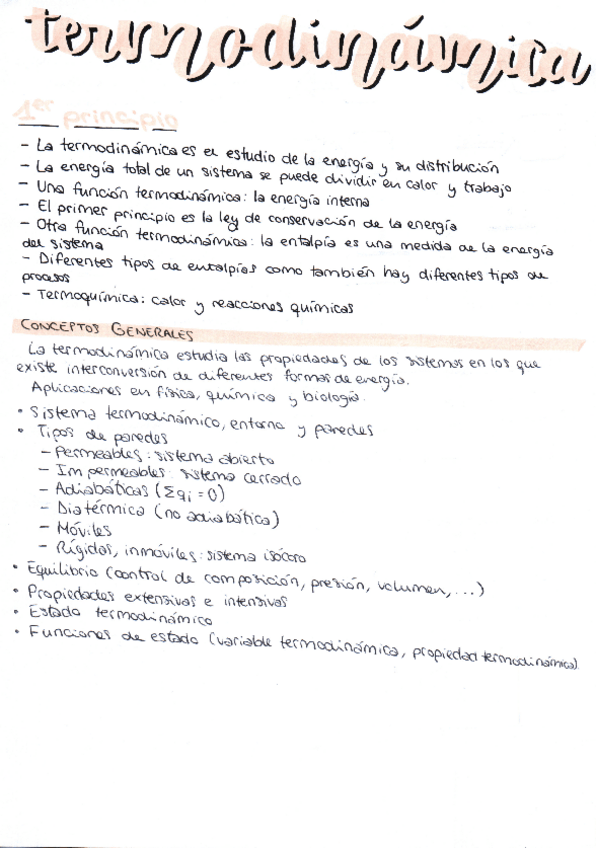 termodinámica
1er principio
- La termodinámica es el estudio de la energía y su distribución
- La energía total de un sistema se puede dividir en calor y trabajo
- Una función termodinámica: la energía interna
- El primer principio es la ley de conservación de la energía
- Otra función termodinámica: la entalpía es una medida de la energía
del sistema
- Diferentes tipos de entalpías como también hay diferentes tipos de
procesos
- Termoquímica: calor y reacciones químicas
CONCEPTOS GENERALES
La termodinámica estudia las propiedades de los sistemas en los que
existe interconversión de diferentes formas de energía.
Aplicaciones en física, química y biología.
• Sistema termodinámico, entorno y paredes
• Tipos de paredes
- Permeables: sistema abierto
- Impermeables: sistema cerrado
- Adiabáticas (Σqi = 0)
- Diatérmica (no adiabática)
- Móviles
- Rígidas, inmóviles: sistema isócoro
• Equilibrio (control de composición, presión, volumen, ...)
• Propiedades extensivas e intensivas
• Estado termodinámico
• Funciones de estado (variable termodinámica, propiedad termodinámica)